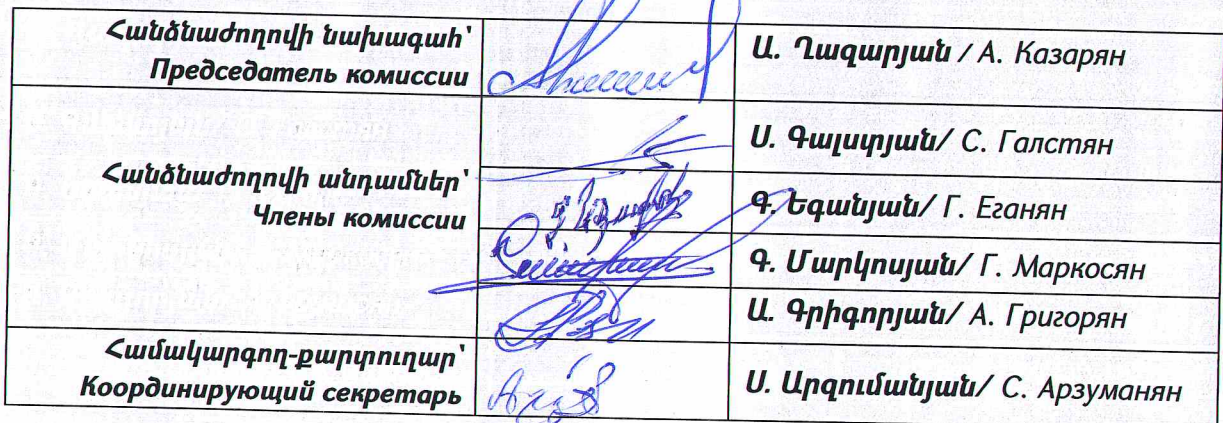 Հանձնաժողովի նախագահ՝
Председатель комиссии
Ա. Ղազարյան / А. Казарян
Հանձնաժողովի անդամներ՝
Члены комиссии
Ս. Գալստյան/ С. Галстян
Գ. Եգանյան/ Г. Еганян
Գ. Մարկոսյան/ Г. Маркосян
Ա. Գրիգորյան/ А. Григорян
Համակարգող-քարտուղար՝
Координирующий секретарь
Ս. Արզումանյան/ С. Арзуманян